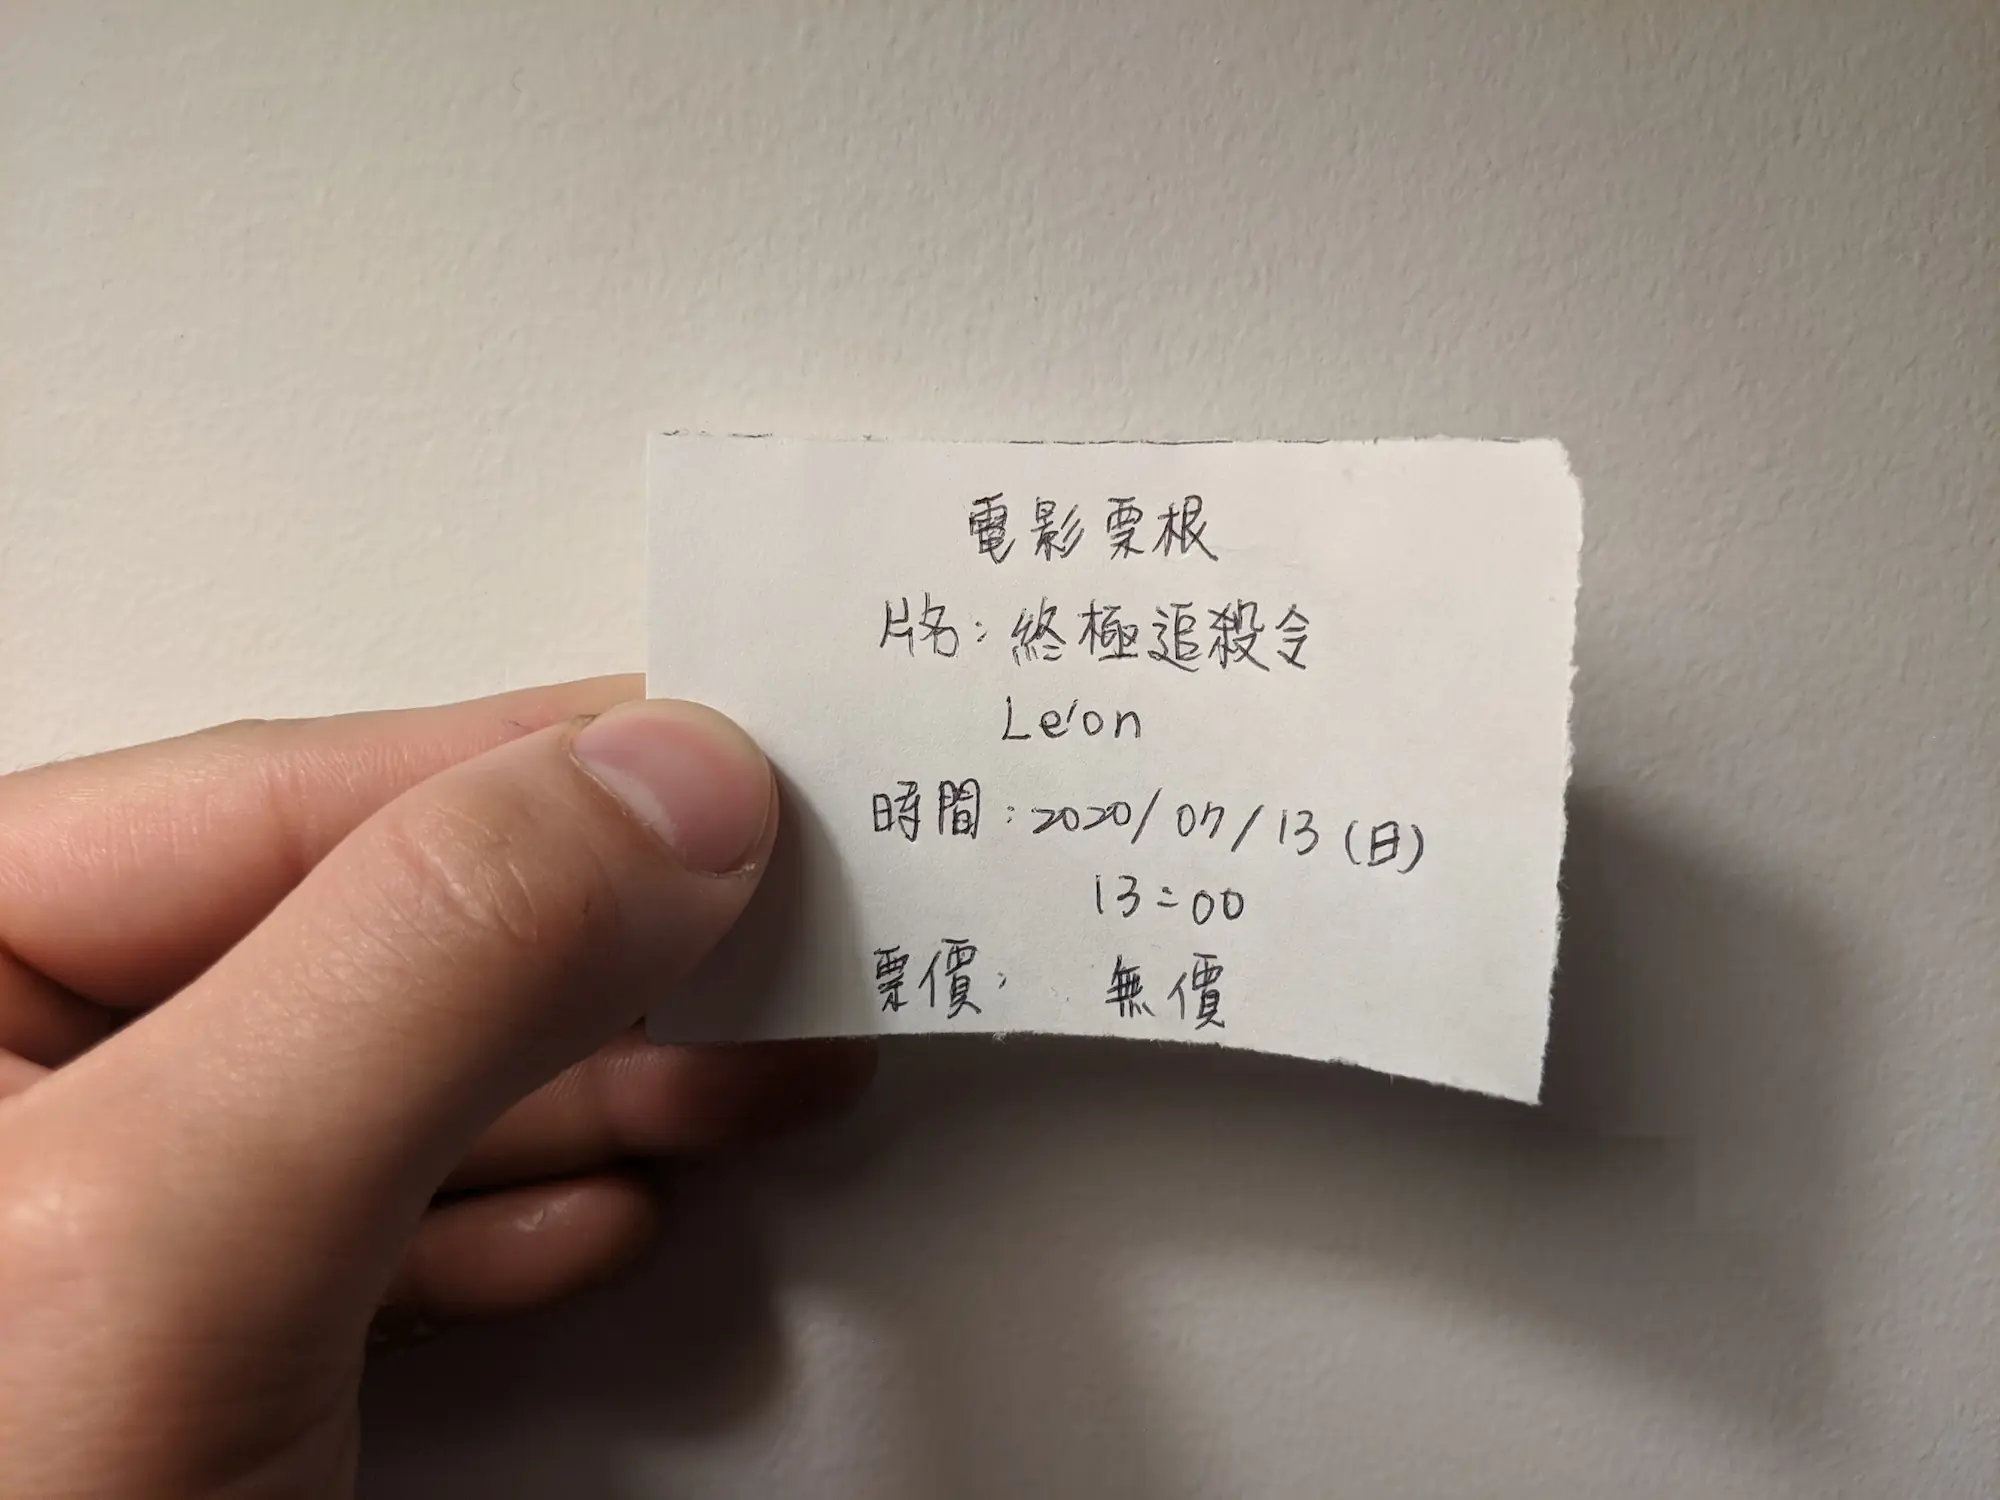 電影票根
片名：終極追殺令
Léon
時間：2020/07/13（日）
13：00
票價： 無價